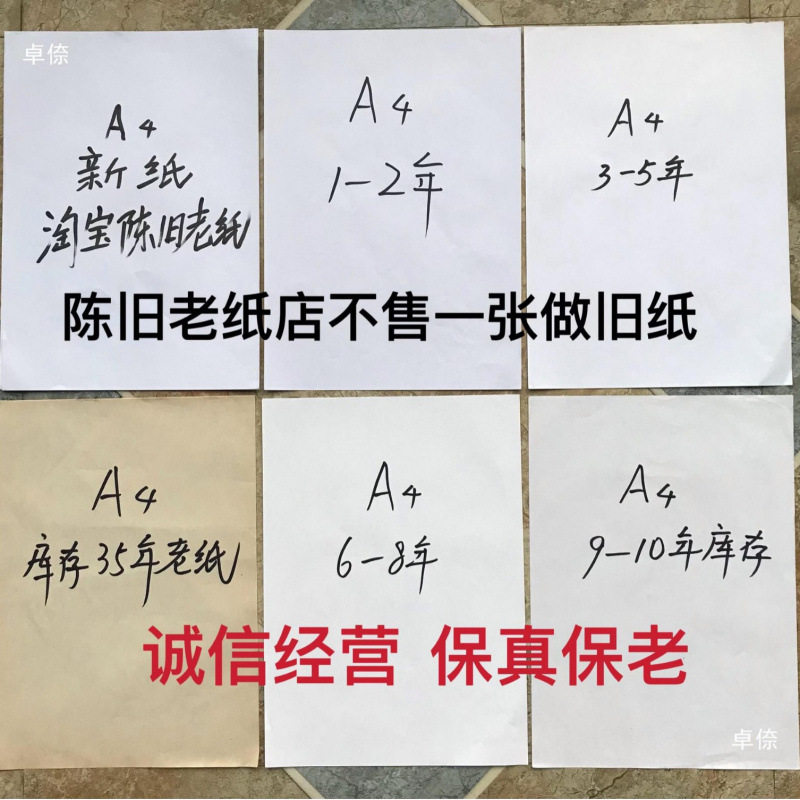 卓倷
A4
新纸
淘宝陈旧老纸
A4
1-2年
A4
3-5年
陈旧老纸店不售一张做旧纸
A4
库存35年老纸
A4
6-8年
A4
9-10年库存
诚信经营 保真保老
卓倷